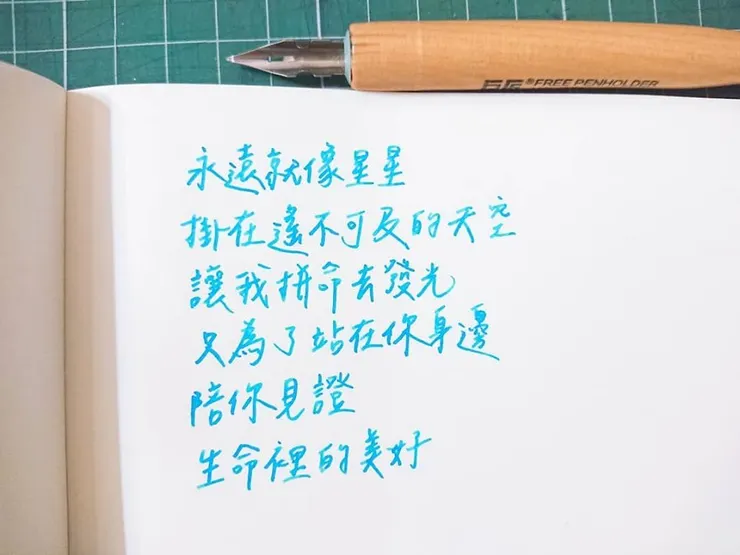 FREE PENHOLDER
永遠就像星星
掛在遙不可及的天空
讓我拼命去發光
只為了站在你身邊
陪你見證
生命裡的美好